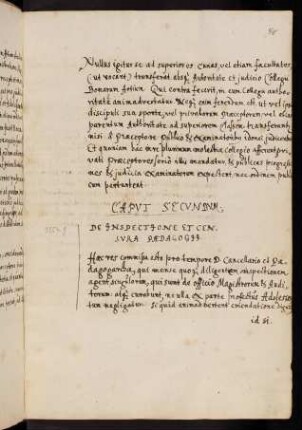 Nullus igitur se ad superiores Classes, vel etiam facultates
(ut vocant) transferat absq; Autoritate et judicio Collegii
Bonarum Artium. Qui contra fecerit, in eum Collegii autho-
ritate animadvertatur Neq; enim ferendum est ut vel ipsi
discipuli sua sponte, vel privatorum praeceptorum, vel etiam
parentum Authoritate ad superiorem Classem transferantur
nisi à Praeceptore Publicis Examinatoribus idonei judicentur
Et quoniam haec res plurimum molestiae Collegio afferet
privati Praeceptores mandabitur, ut publicas progressiones
et judicia Examinatorum expectent, nec ordinem publicum
perturbent.
CAPUT SECUNDUM.
DE INSPECTIONE ET CEN-
SURA PAEDAGOGII
Haec res commissa esto pro tempore D. Cancellario et Pae-
dagogarchae, qui mense quoq; diligentem inspectionem
agent singulorum, qui sunt de officio Magistrorum et Audi-
torum: atq; curabunt, ne ulla ex parte Adolescen-
tum negligatur. Si quid animadverterint emendatione dignum
id si.